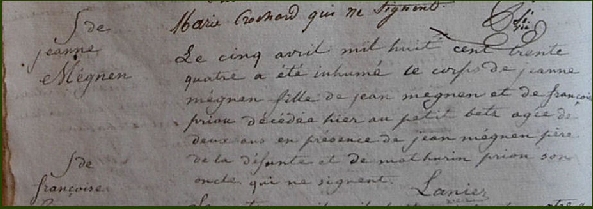 Marie Crochard qui ne signent
S de
jeanne
Mégnen
Le cinq avril mil huit cent trente
quatre a été inhumé le corps de jeanne
mégnen fille de jean mégnen et de françoise
prion décédée hier au petit beta agée de
deux ans en présence de jean mégnen père
de la défunte et de mathurin prion son
oncle qui ne signent. Lanier
S de
françoise